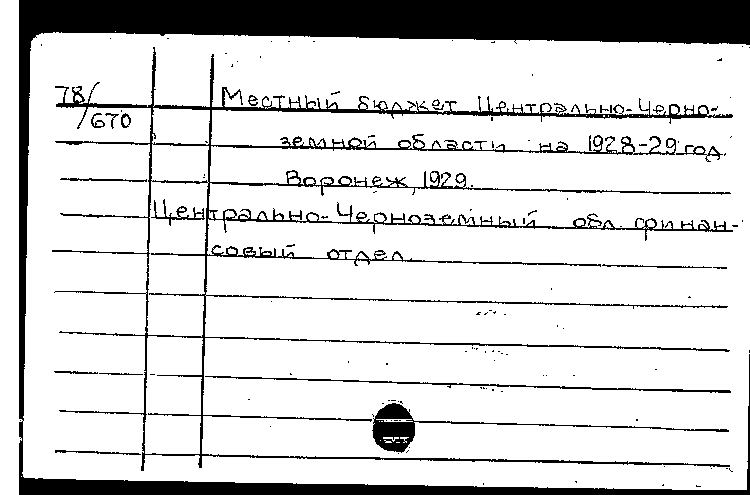 78/
/670
Местный бюджет Центрально-Черно-
земной области на 1928-29 год.
Воронеж, 1929.
Центрально-Черноземный обл. финан-
совый отдел.